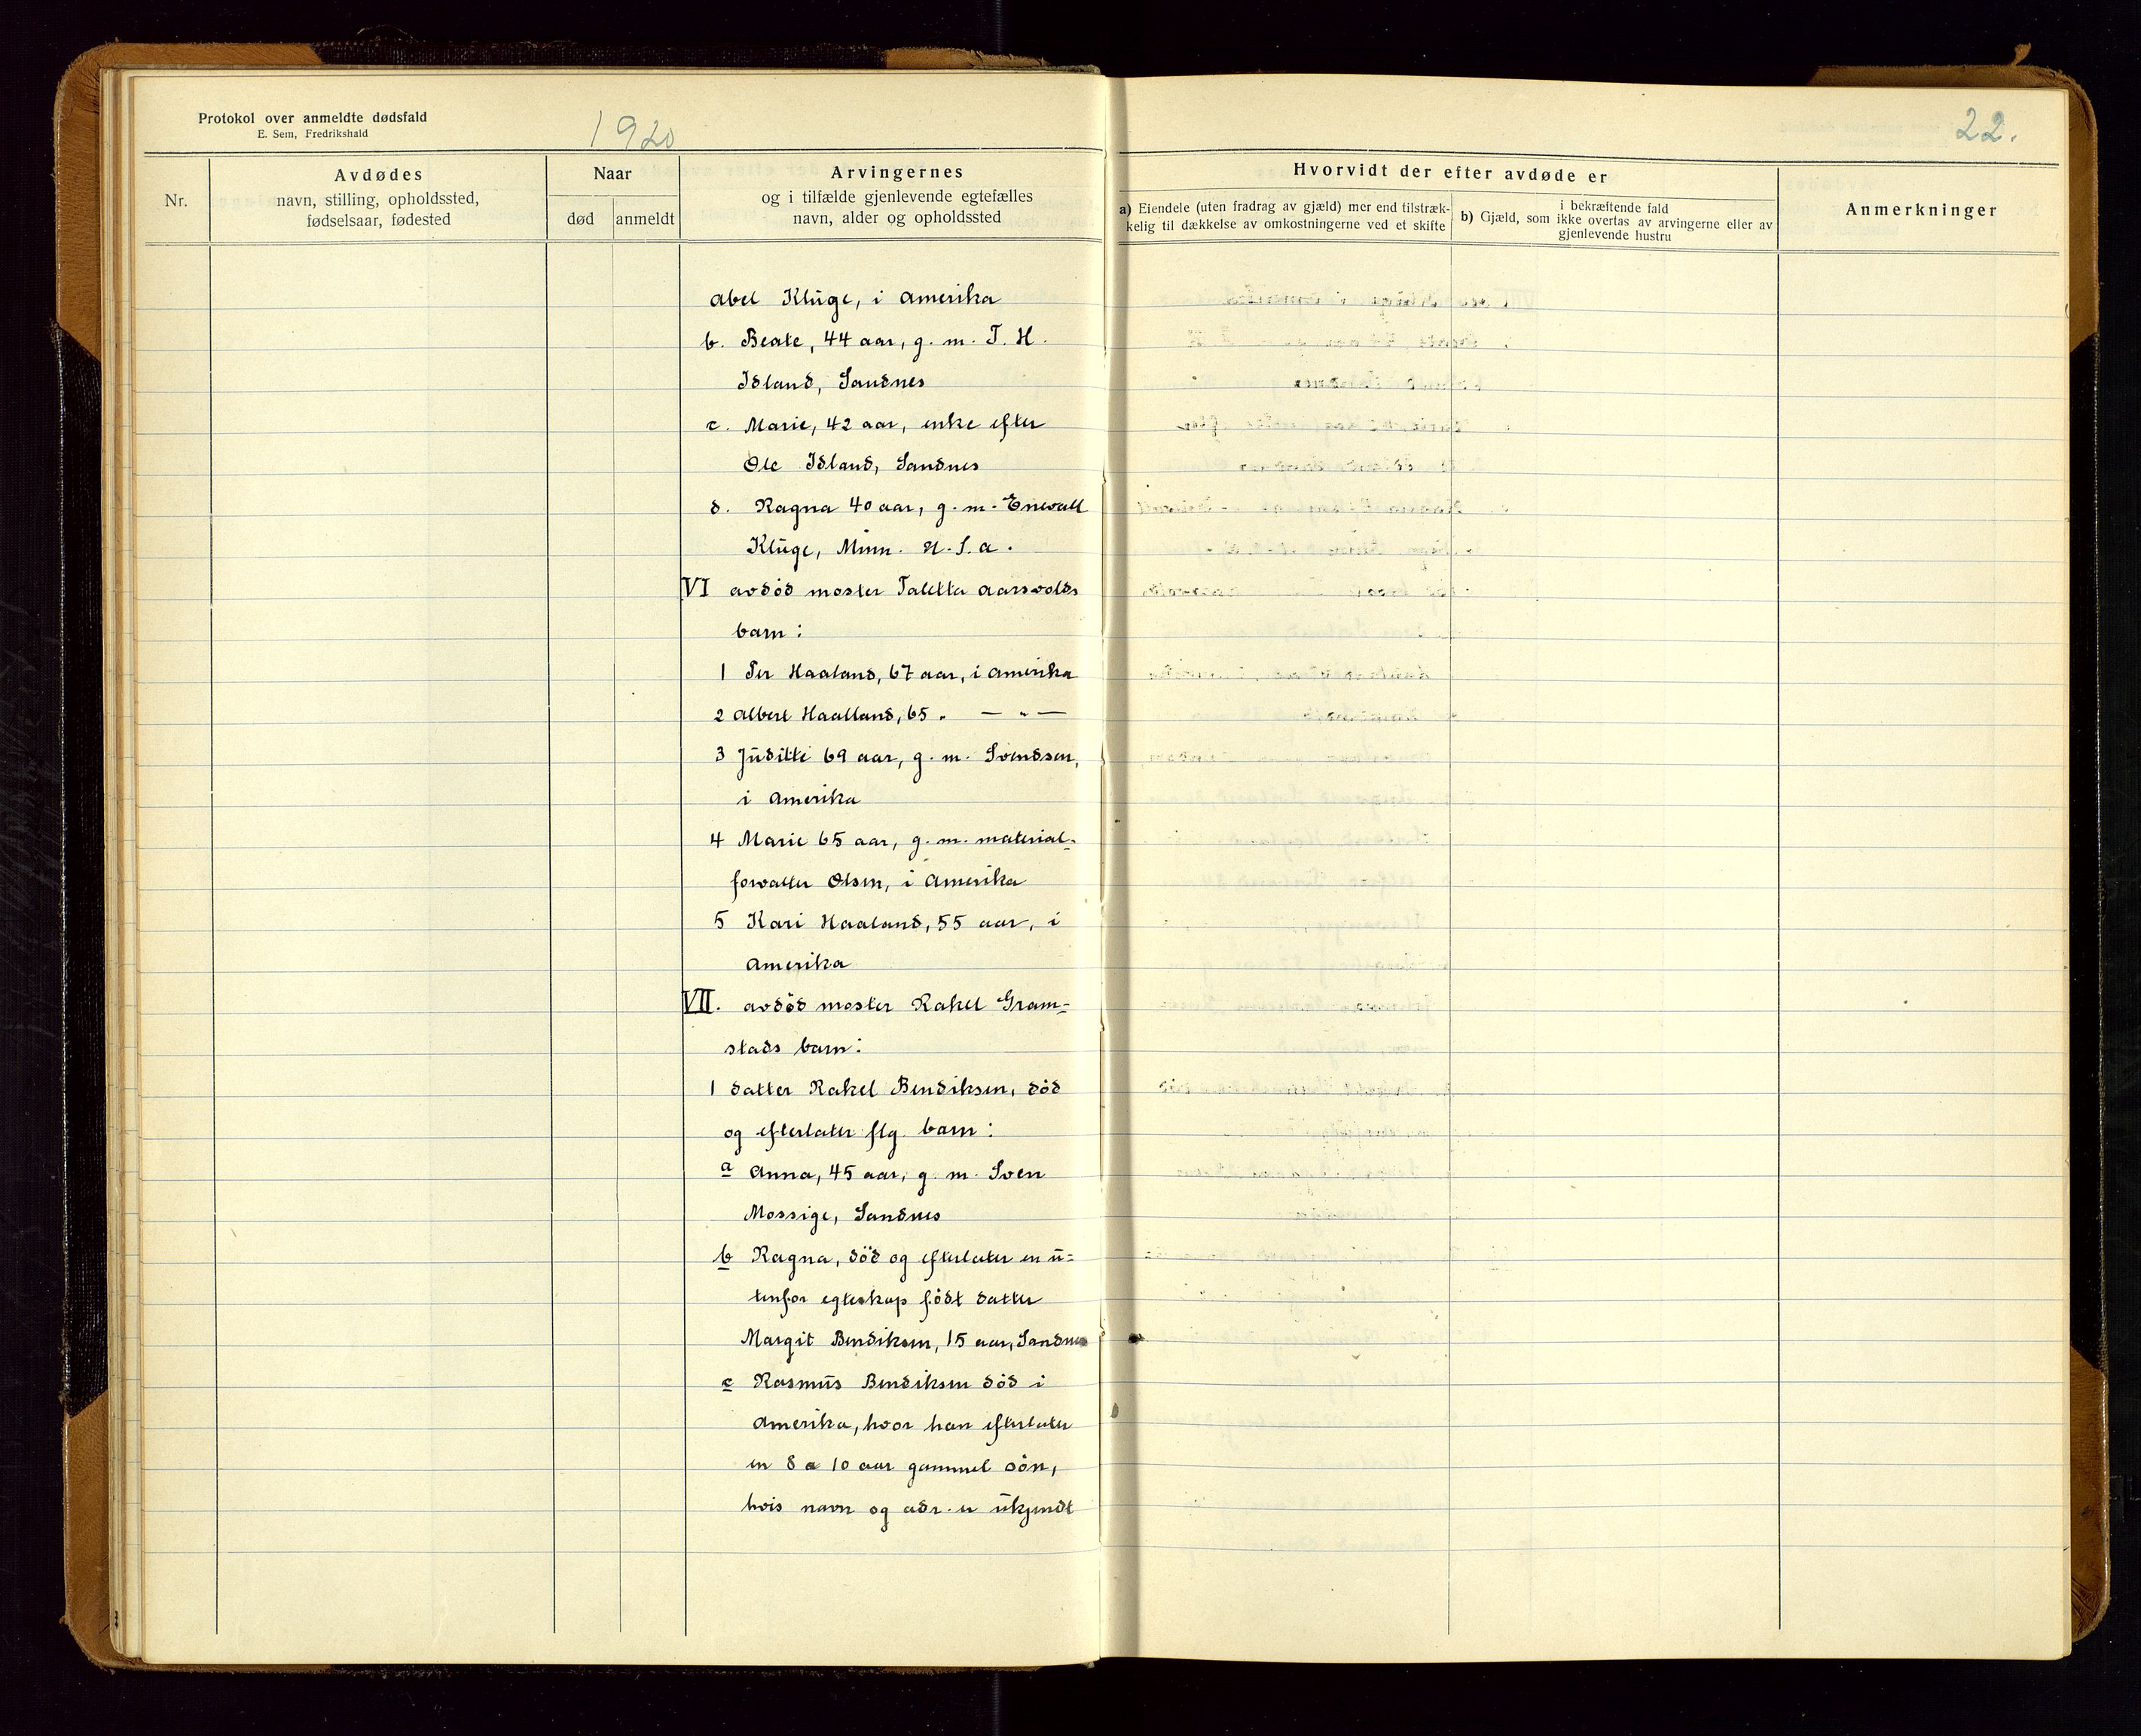 Protokol over anmeldte dødsfald
E. Sem, Fredrikshald
1920
22.
Nr.
Avdødes
navn, stilling, opholdssted,
fødselsaar, fødested
Naar
død
anmeldt
Arvingernes
og i tilfælde gjenlevende egtefælles
navn, alder og opholdssted
Hvorvidt der efter avdøde er
a) Eiendele (uten fradrag av gjæld) mer end tilstræk-
kelig til dækkelse av omkostningerne ved et skifte
i bekræftende fald
b) Gjæld, som ikke overtas av arvingerne eller av
gjenlevende hustru
Anmerkninger
Abel Kluge, i Amerika
b. Beate, 44 aar, g. m. T. H.
Idland, Sandnes
c. Marie, 42 aar, enke efter
Ole Idland, Sandnes
d. Ragna 40 aar, g. m. Enevald
Kluge, Minn. U.S.A.
VI avdød moster Taletta Aarsvolds
barn:
1 Per Haaland, 67 aar, i Amerika
2 Albert Haalland, 65 " — " —
3 Juditte 69 aar, g. m. Svendsen,
i Amerika
4 Marie 65 aar, g. m. material-
forvalter Olsen, i Amerika
5 Kari Haaland, 55 aar, i
Amerika
VII. avdød moster Rakel Gram-
stads barn:
1 datter Rakel Bendiksen, död
og efterlater flg. barn:
a Anna, 45 aar, g. m. Sven
Mossige, Sandnes
b Ragna, död og efterlater en u-
tenfor egteskap födt datter
Margit Bendiksen, 15 aar, Sandnes
c Rasmus Bendiksen död i
Amerika, hvor han efterlater
en 8 a 10 aar gammel sön,
hvis navn og adr. er ukjendt